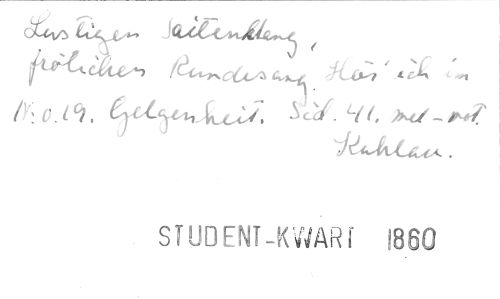 Lustigen Saitenklang,
frölichen Rundesang. Hör' ich in
N:o. 19. Gelgenheit. Sid. 41. mel-not.
Kuhlau.
STUDENT-KWART 1860